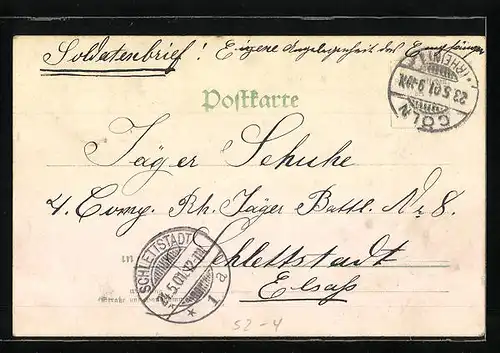 Soldatenbrief! Eigene Angelegenheit des Empfängers
Postkarte
CÖLN
(RHEIN) 1
23.5.01.9-10N.
Jäger Schuhe
4. Comp. Rh. Jäger Batl. Nr 8.
in Schlettstadt
Elsaß
SCHLETTSTADT
24.5.01.
* 1 a
52-4